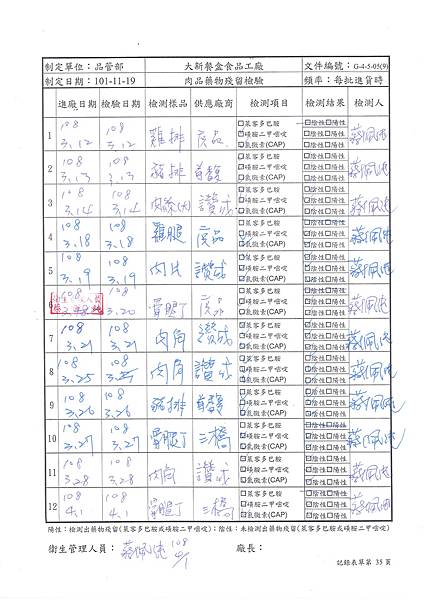 制定單位：品管部 大新餐盒食品工廠 文件編號：G-4-5-05(9)
制定日期：101-11-19 肉品藥物殘留檢驗 頻率：每批進貨時
進廠日期 檢驗日期 檢測樣品 供應廠商 檢測項目 檢測結果 檢測人
1 108 3.12 108 3.12 雞排 □萊客多巴胺 磺胺二甲嘧啶 氯黴素(CAP) 陰性□陽性 陰性□陽性 陰性□陽性 蔡佩
2 108 3.13 108 3.13 豬排 首馥 □萊客多巴胺 磺胺二甲嘧啶 氯黴素(CAP) 陰性□陽性 陰性□陽性 陰性□陽性 蔡佩
3 108 3.14 108 3.14 肉絲(大) 讚成 □萊客多巴胺 磺胺二甲嘧啶 氯黴素(CAP) 陰性□陽性 陰性□陽性 陰性□陽性 蔡佩
4 108 3.18 108 3.18 雞腿 □萊客多巴胺 磺胺二甲嘧啶 氯黴素(CAP) 陰性□陽性 陰性□陽性 陰性□陽性 蔡佩
5 108 3.19 108 3.19 肉片 讚成 □萊客多巴胺 磺胺二甲嘧啶 氯黴素(CAP) 陰性□陽性 陰性□陽性 陰性□陽性 蔡佩
6 108 108 3.20 □萊客多巴胺 磺胺二甲嘧啶 氯黴素(CAP) 陰性□陽性 陰性□陽性 陰性□陽性 蔡佩
7 108 3.21 108 3.21 肉角 讚成 □萊客多巴胺 磺胺二甲嘧啶 氯黴素(CAP) 陰性□陽性 陰性□陽性 陰性□陽性 蔡佩
8 108 3.25 108 3.25 肉角 讚成 □萊客多巴胺 磺胺二甲嘧啶 氯黴素(CAP) 陰性□陽性 陰性□陽性 陰性□陽性 蔡佩
9 108 3.26 108 3.26 豬排 首馥 □萊客多巴胺 磺胺二甲嘧啶 氯黴素(CAP) 陰性□陽性 陰性□陽性 陰性□陽性 蔡佩
10 108 3.27 108 3.27 三橋 □萊客多巴胺 磺胺二甲嘧啶 氯黴素(CAP) 陰性□陽性 陰性□陽性 陰性□陽性 蔡佩
11 108 3.28 108 3.28 讚成 □萊客多巴胺 磺胺二甲嘧啶 氯黴素(CAP) 陰性□陽性 陰性□陽性 陰性□陽性 蔡佩
12 108 4.1 108 4.1 三橋 □萊客多巴胺 磺胺二甲嘧啶 氯黴素(CAP) 陰性□陽性 陰性□陽性 陰性□陽性 蔡佩
陽性：檢測出藥物殘留(萊客多巴胺或磺胺二甲嘧啶)；陰性：未檢測出藥物殘留(萊客多巴胺或磺胺二甲嘧啶)
衛生管理人員：蔡佩 108 4/1 廠長：
記錄表單第 35 頁